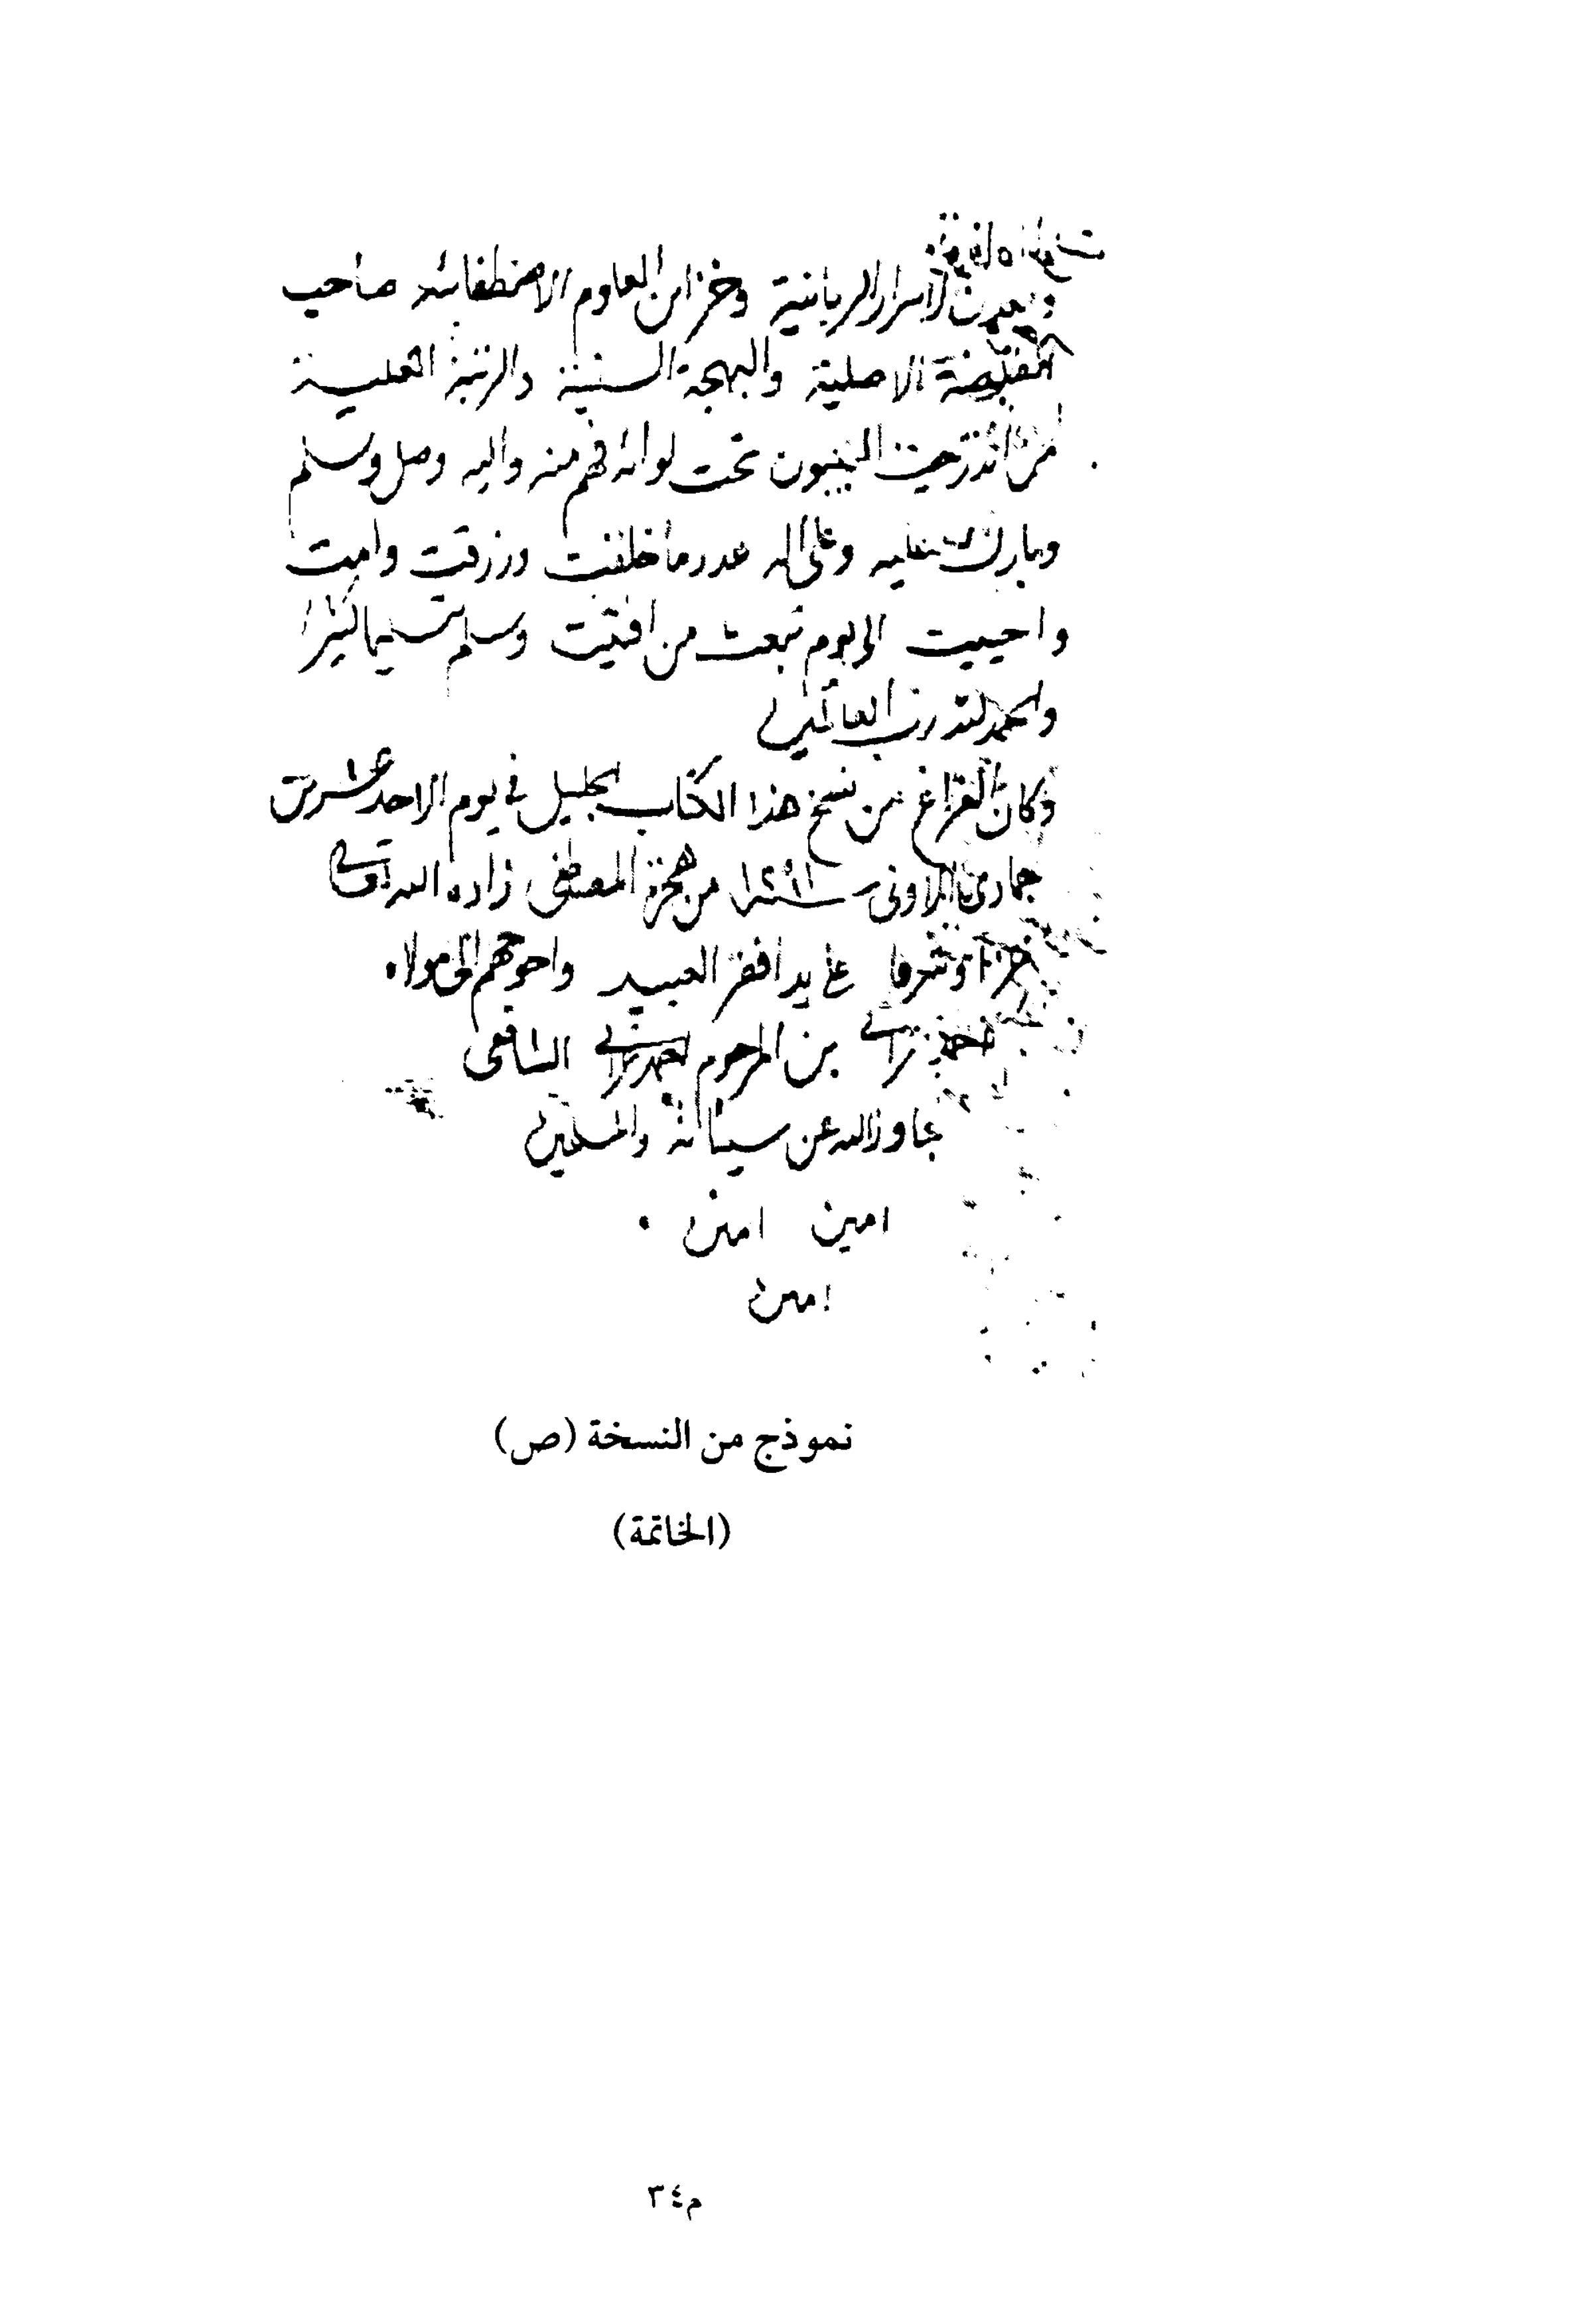 ومعدن الاسرار الربانية وخزائن العلوم الاصطفائية صاحب
القبضة الاصلية والبهجة السنية والرتبة العلية
من اندرجت النبيون تحت لوائه فهم منه واليه وصل وسلم
وبارك عليه وعلى اله عدد ما خلقت ورزقت وامت
واحييت الى يوم تبعث من افنيت وسلم تسليما كثيرا
والحمد لله رب العالمين
وكان الفراغ من نسخ هذا الكتاب الجليل في يوم الاحد
جمادى الاولى سنة من هجرة المصطفى زاده الله تعالى
وشرفا على يد افقر العبيد واحوجهم الى مولاه
بن المرحوم الشافعى
تجاوز الله عن سيئاته والمسلمين
امين امين
امين
نموذج من النسخة (ص)
(الخاتمة)
م٣٤